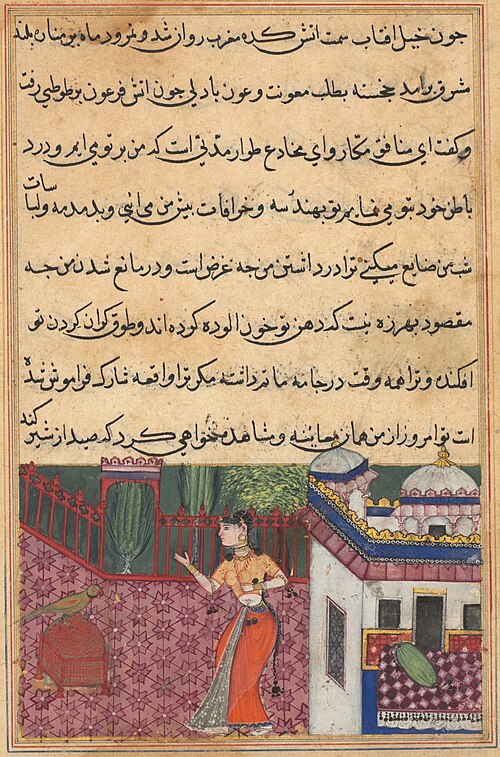 جون خیل افتاب سمت اتش کده مغرب روان شد و نمرود ماه بر منا
مشرق برامد خجسته بطلب معونت و عون بادلی جون اتش فرعون بر طوطی رفت
و کفت ای منافق مکار و ای مخادع طرار مدتی است که من بر تو می ایم و درد
باطن خود بتو می نمایم تو بهندسه و خرافات بیش من می ائی و بدمدمه و
شب من ضایع میکنی ترا در داشتن من جه غرض است و در مانع شدن من جه
مقصود بهرزه دهن تو خون الوده کرده اند و طوق کردن تو
افکنده و ترا همه وقت در جامه ماتم داشته مکر ترا واقعه شارک فراموش شده
است تو امروز از من همان معاینه و مشاهده خواهی کرد که صید از شیر کند